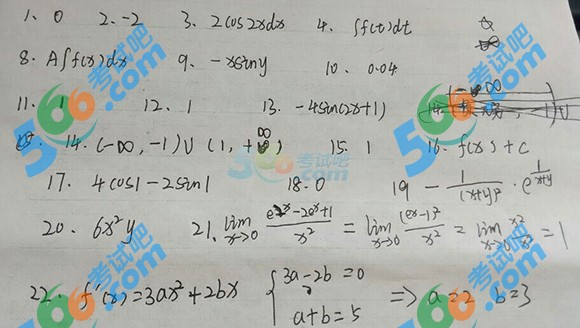 1. 0 2. -2 3. 2cos2xdx 4. ∫f(t)dt
8. A∫f(x)dx 9. -xsiny 10. 0.04
11. 1 12. 1 13. -4sin(2x+1)
14. (-∞, -1)∪(1, +∞) 15. 1 16. f(x)+C
17. 4cos1-2sin1 18. 0 19 -1/(x+y)²·e^(1/(x+y))
20. 6x²y 21. lim x→0 (e^2x-2e^x+1)/x² = lim x→0 (e^x-1)²/x² = lim x→0 x²/x² = 1
22. f'(x)=3ax²+2bx { 3a-2b=0 a+b=5 ⇒ a=2 b=3
566 考试吧
.com